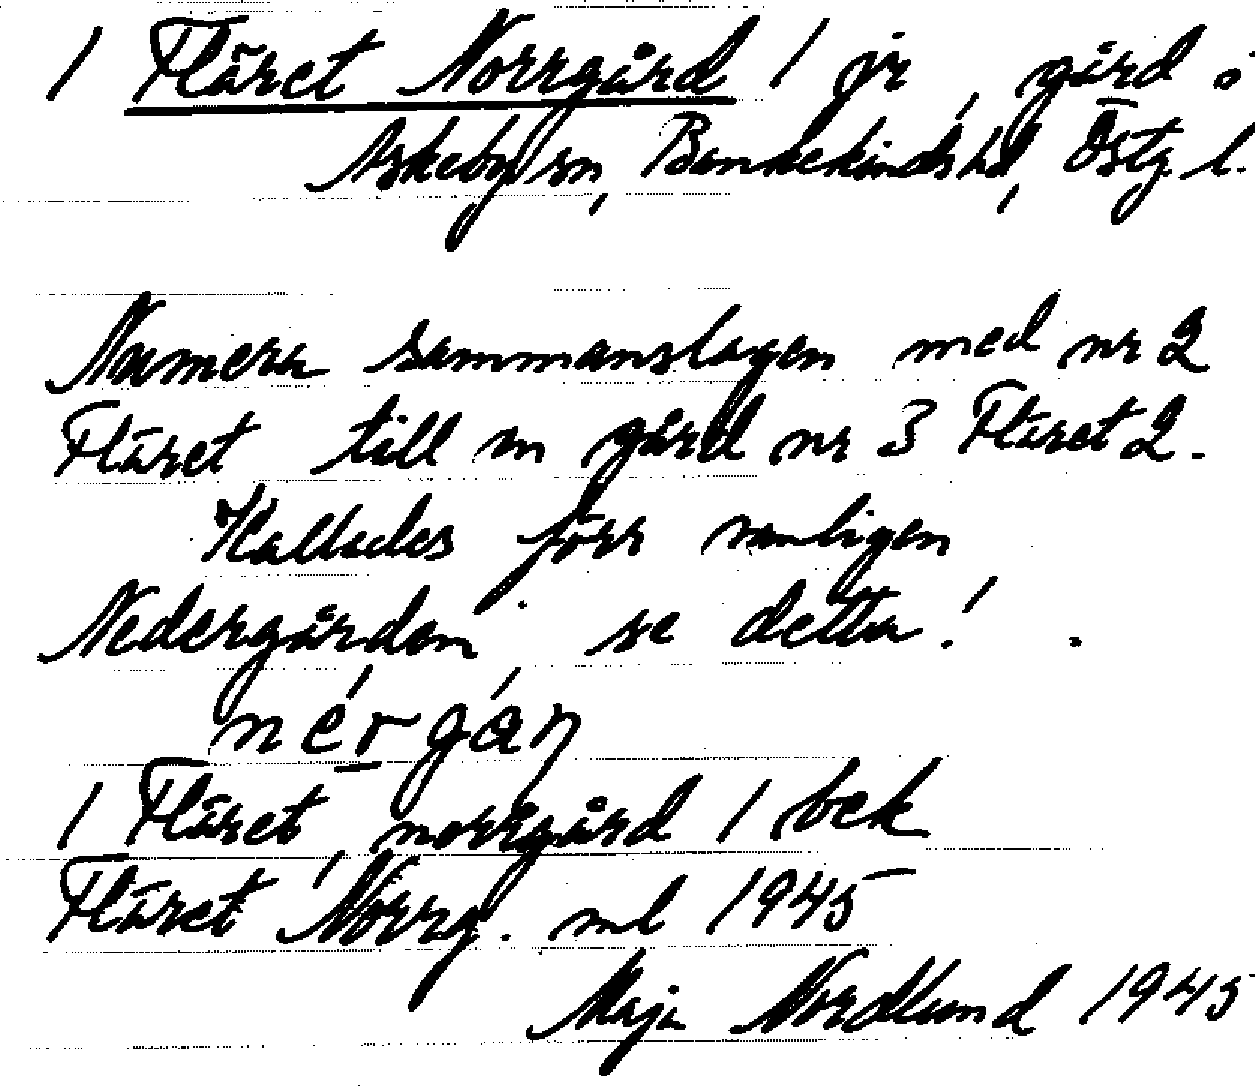 1 Fläret Norrgård 1 jr, gård i
Askeby sn, Bankekinds hd, Östg. l.
Numera sammanslagen med nr 2
Fläret till en gård nr 3 Fläret 2.
Kallades förr vanligen
Nedergården se detta!
nérgán
1 Fläret, norrgård 1 bek
Fläret Norrg. ml 1945
Maja Nordlund 1945